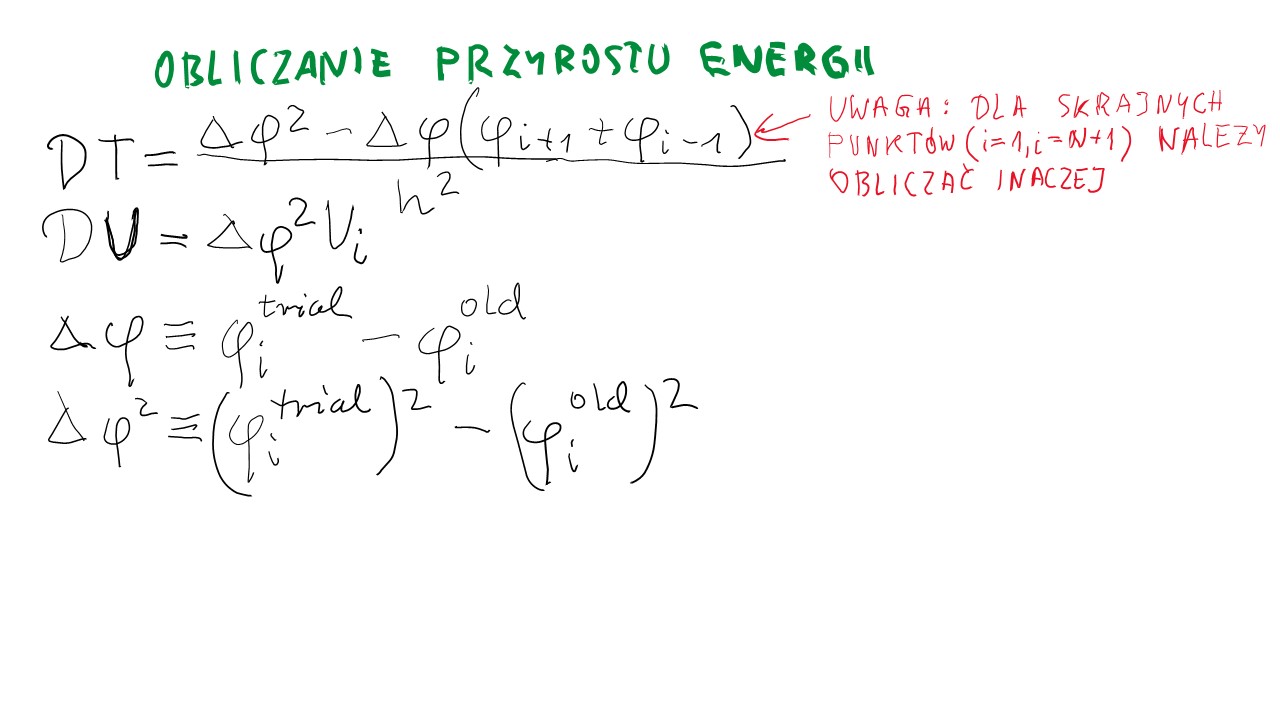 OBLICZANIE PRZYROSTU ENERGII
DT = (Δφ² − Δφ(φ_{i+1} + φ_{i−1})) / h²
UWAGA: DLA SKRAJNYCH
PUNKTÓW (i=1, i=N+1) NALEZY
OBLICZAĆ INACZEJ
DV = Δφ² V_i
Δφ ≡ φ_i^{trial} − φ_i^{old}
Δφ² ≡ (φ_i^{trial})² − (φ_i^{old})²